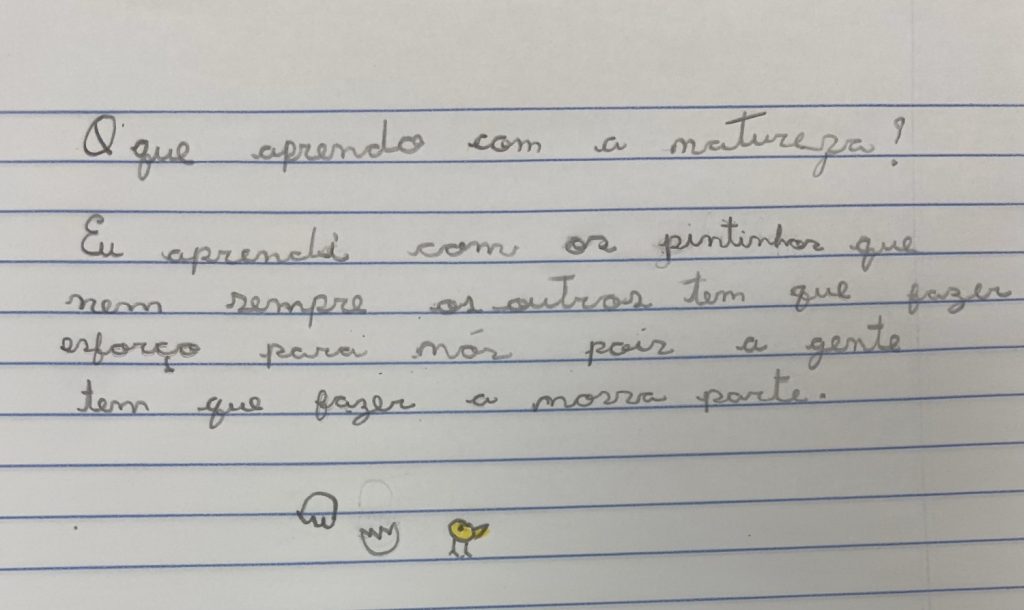 O que aprendo com a natureza?
Eu aprendi com os pintinhos que
nem sempre os outros tem que fazer
esforço para nós pois a gente
tem que fazer a nossa parte.